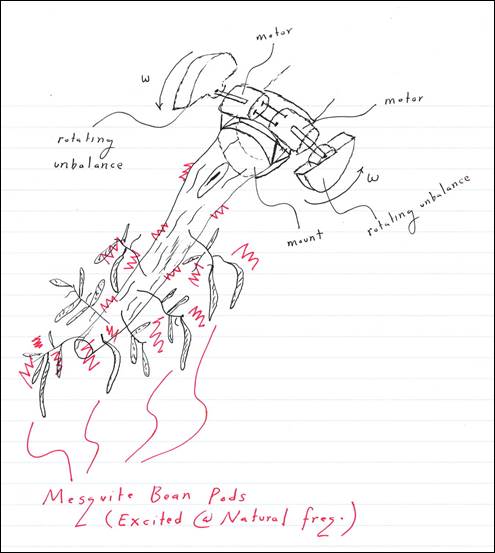 motor
ω
motor
rotating
unbalance
ω
rotating unbalance
mount
Mesquite Bean Pods
(Excited @ Natural freq.)